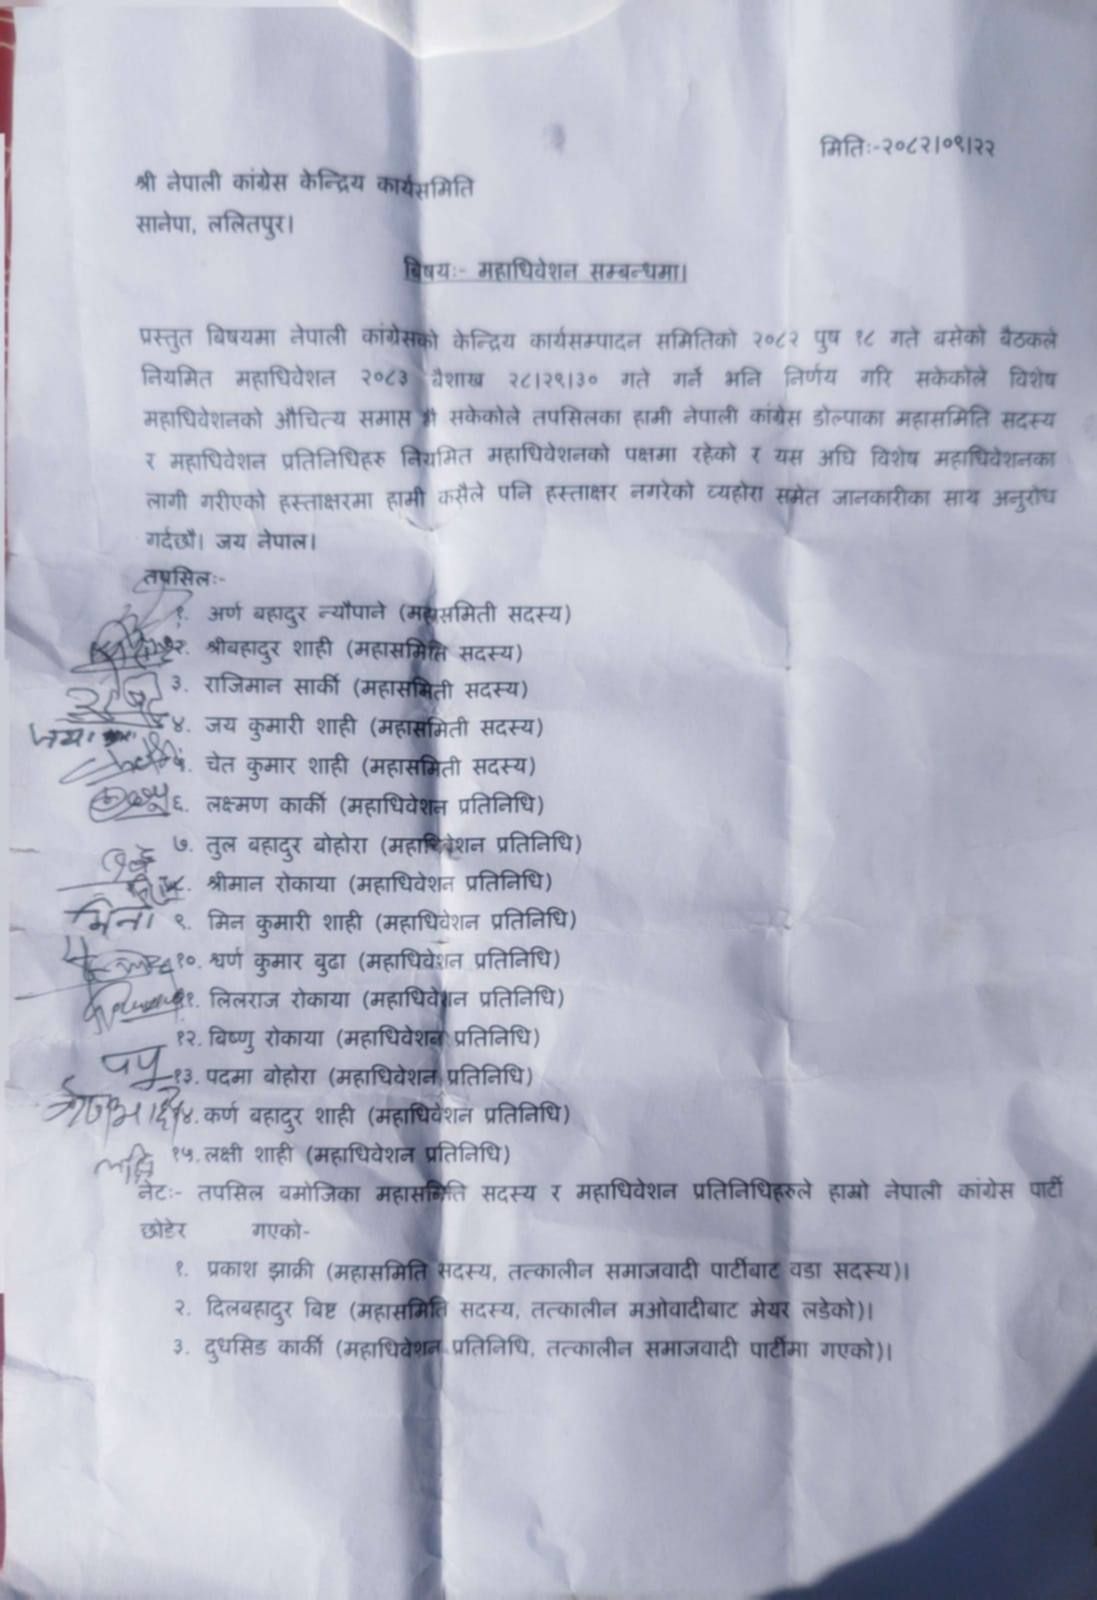 मितिः-२०८२।०९।२२
श्री नेपाली कांग्रेस केन्द्रिय कार्यसमिति
सानेपा, ललितपुर।
बिषयः- महाधिवेशन सम्बन्धमा।
प्रस्तुत बिषयमा नेपाली कांग्रेसको केन्द्रिय कार्यसम्पादन समितिको २०८२ पुष १८ गते बसेको बैठकले
नियमित महाधिवेशन २०८३ बैशाख २८।२९।३० गते गर्ने भनि निर्णय गरि सकेकोले विशेष
महाधिवेशनको औचित्य समाप्त भै सकेकोले तपसिलका हामी नेपाली कांग्रेस डोल्पाका महासमिति सदस्य
र महाधिवेशन प्रतिनिधिहरु नियमित महाधिवेशनको पक्षमा रहेको र यस अघि विशेष महाधिवेशनका
लागी गरीएको हस्ताक्षरमा हामी कसैले पनि हस्ताक्षर नगरेको व्यहोरा समेत जानकारीका साथ अनुरोध
गर्दछौ। जय नेपाल।
तपसिलः-
१. अर्ण बहादुर न्यौपाने (महासमिती सदस्य)
२. श्रीबहादुर शाही (महासमिति सदस्य)
३. राजिमान सार्की (महासमिती सदस्य)
जया ४. जय कुमारी शाही (महासमिती सदस्य)
५. चेत कुमार शाही (महासमिती सदस्य)
६. लक्ष्मण कार्की (महाधिवेशन प्रतिनिधि)
७. तुल बहादुर बोहोरा (महाधिवेशन प्रतिनिधि)
८. श्रीमान रोकाया (महाधिवेशन प्रतिनिधि)
मिना ९. मिन कुमारी शाही (महाधिवेशन प्रतिनिधि)
१०. श्वर्ण कुमार बुढा (महाधिवेशन प्रतिनिधि)
११. लिलराज रोकाया (महाधिवेशन प्रतिनिधि)
१२. बिष्णु रोकाया (महाधिवेशन प्रतिनिधि)
१३. पदमा बोहोरा (महाधिवेशन प्रतिनिधि)
१४. कर्ण बहादुर शाही (महाधिवेशन प्रतिनिधि)
१५. लक्षी शाही (महाधिवेशन प्रतिनिधि)
नेटः- तपसिल बमोजिका महासमिति सदस्य र महाधिवेशन प्रतिनिधिहरुले हाम्रो नेपाली कांग्रेस पार्टी
छोडेर गएको-
१. प्रकाश झाक्री (महासमिति सदस्य, तत्कालीन समाजवादी पार्टीबाट वडा सदस्य)।
२. दिलबहादुर बिष्ट (महासमिति सदस्य, तत्कालीन मओवादीबाट मेयर लडेको)।
३. दुधसिङ कार्की (महाधिवेशन प्रतिनिधि, तत्कालीन समाजवादी पार्टीमा गएको)।